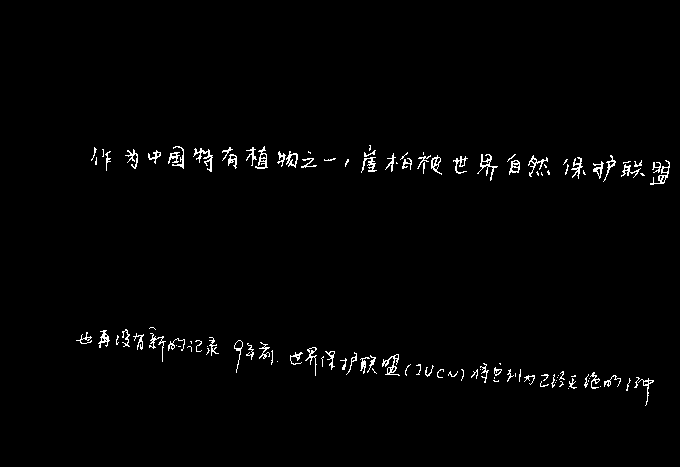 作为中国特有植物之一,崖柏被世界自然保护联盟
也再没有新的记录 9年前.世界保护联盟(IUCN)将它列为已经灭绝的3种